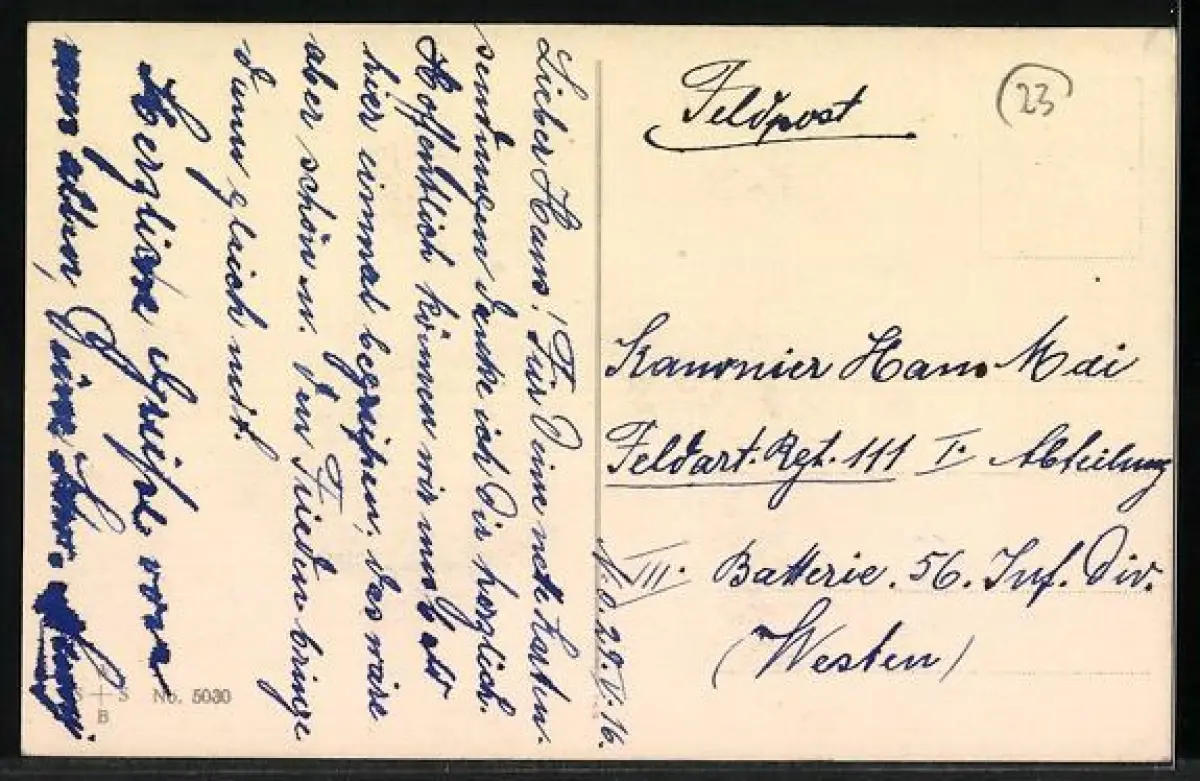 Feldpost
23
Kanonier Hans Mai
Feldart. Rgt. 111 I. Abteilung
III. Batterie. 56. Inf. Div.
(Westen)
29.V.16.
Lieber Hans! Für Deine nette Karten-
sendungen danke ich Dir herzlich.
Hoffentlich können wir uns bald
hier einmal begrüßen, das wäre
aber schön u. den Frieden bringe
dann gleich mit.
Herzliche Grüße von
uns allen, Deine
S + S
B
No. 5030